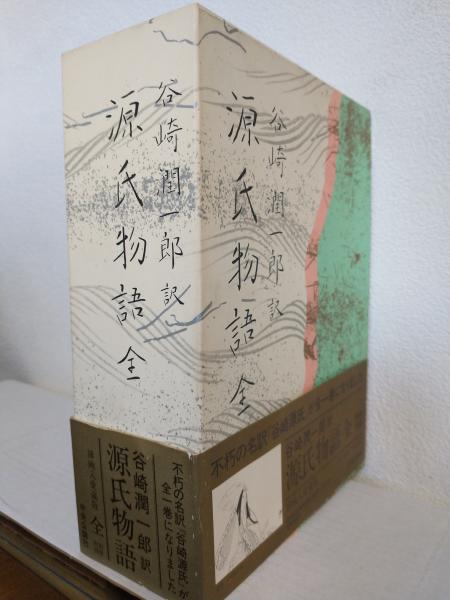 谷崎潤一郎 訳
源氏物語 全
谷崎潤一郎 訳
源氏物語 全
谷崎潤一郎 訳
源氏物語
全
中央公論社
不朽の名訳〝谷崎源氏〟が
全一巻になりました
谷崎潤一郎
源氏物語 全